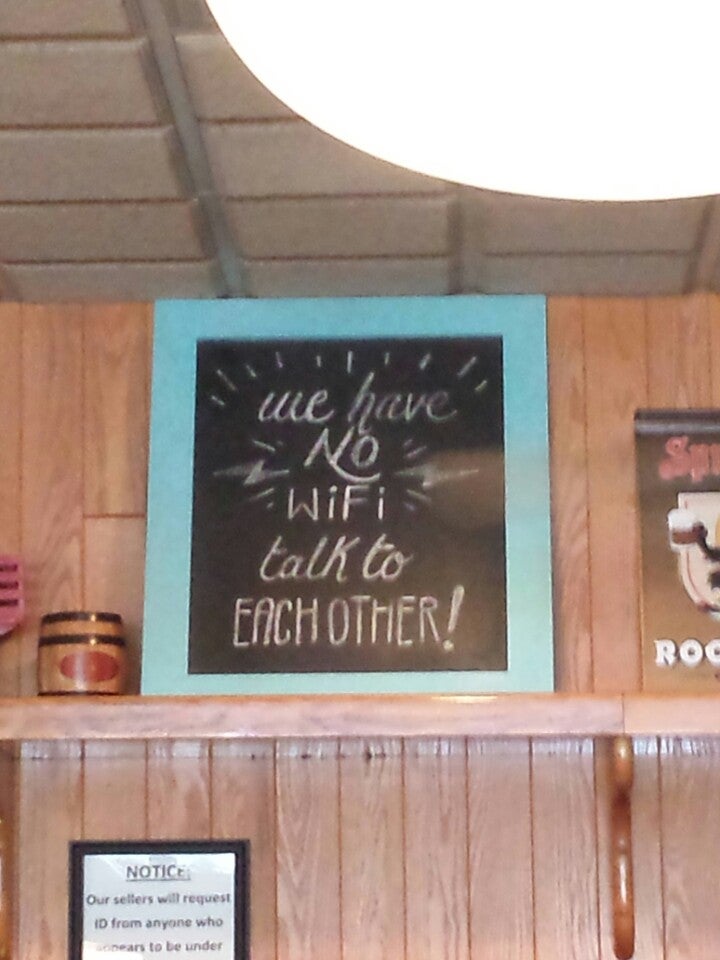 we have
NO
WiFi
talk to
EACH OTHER!
ROO
NOTICE:
Our sellers will request
ID from anyone who
appears to be under